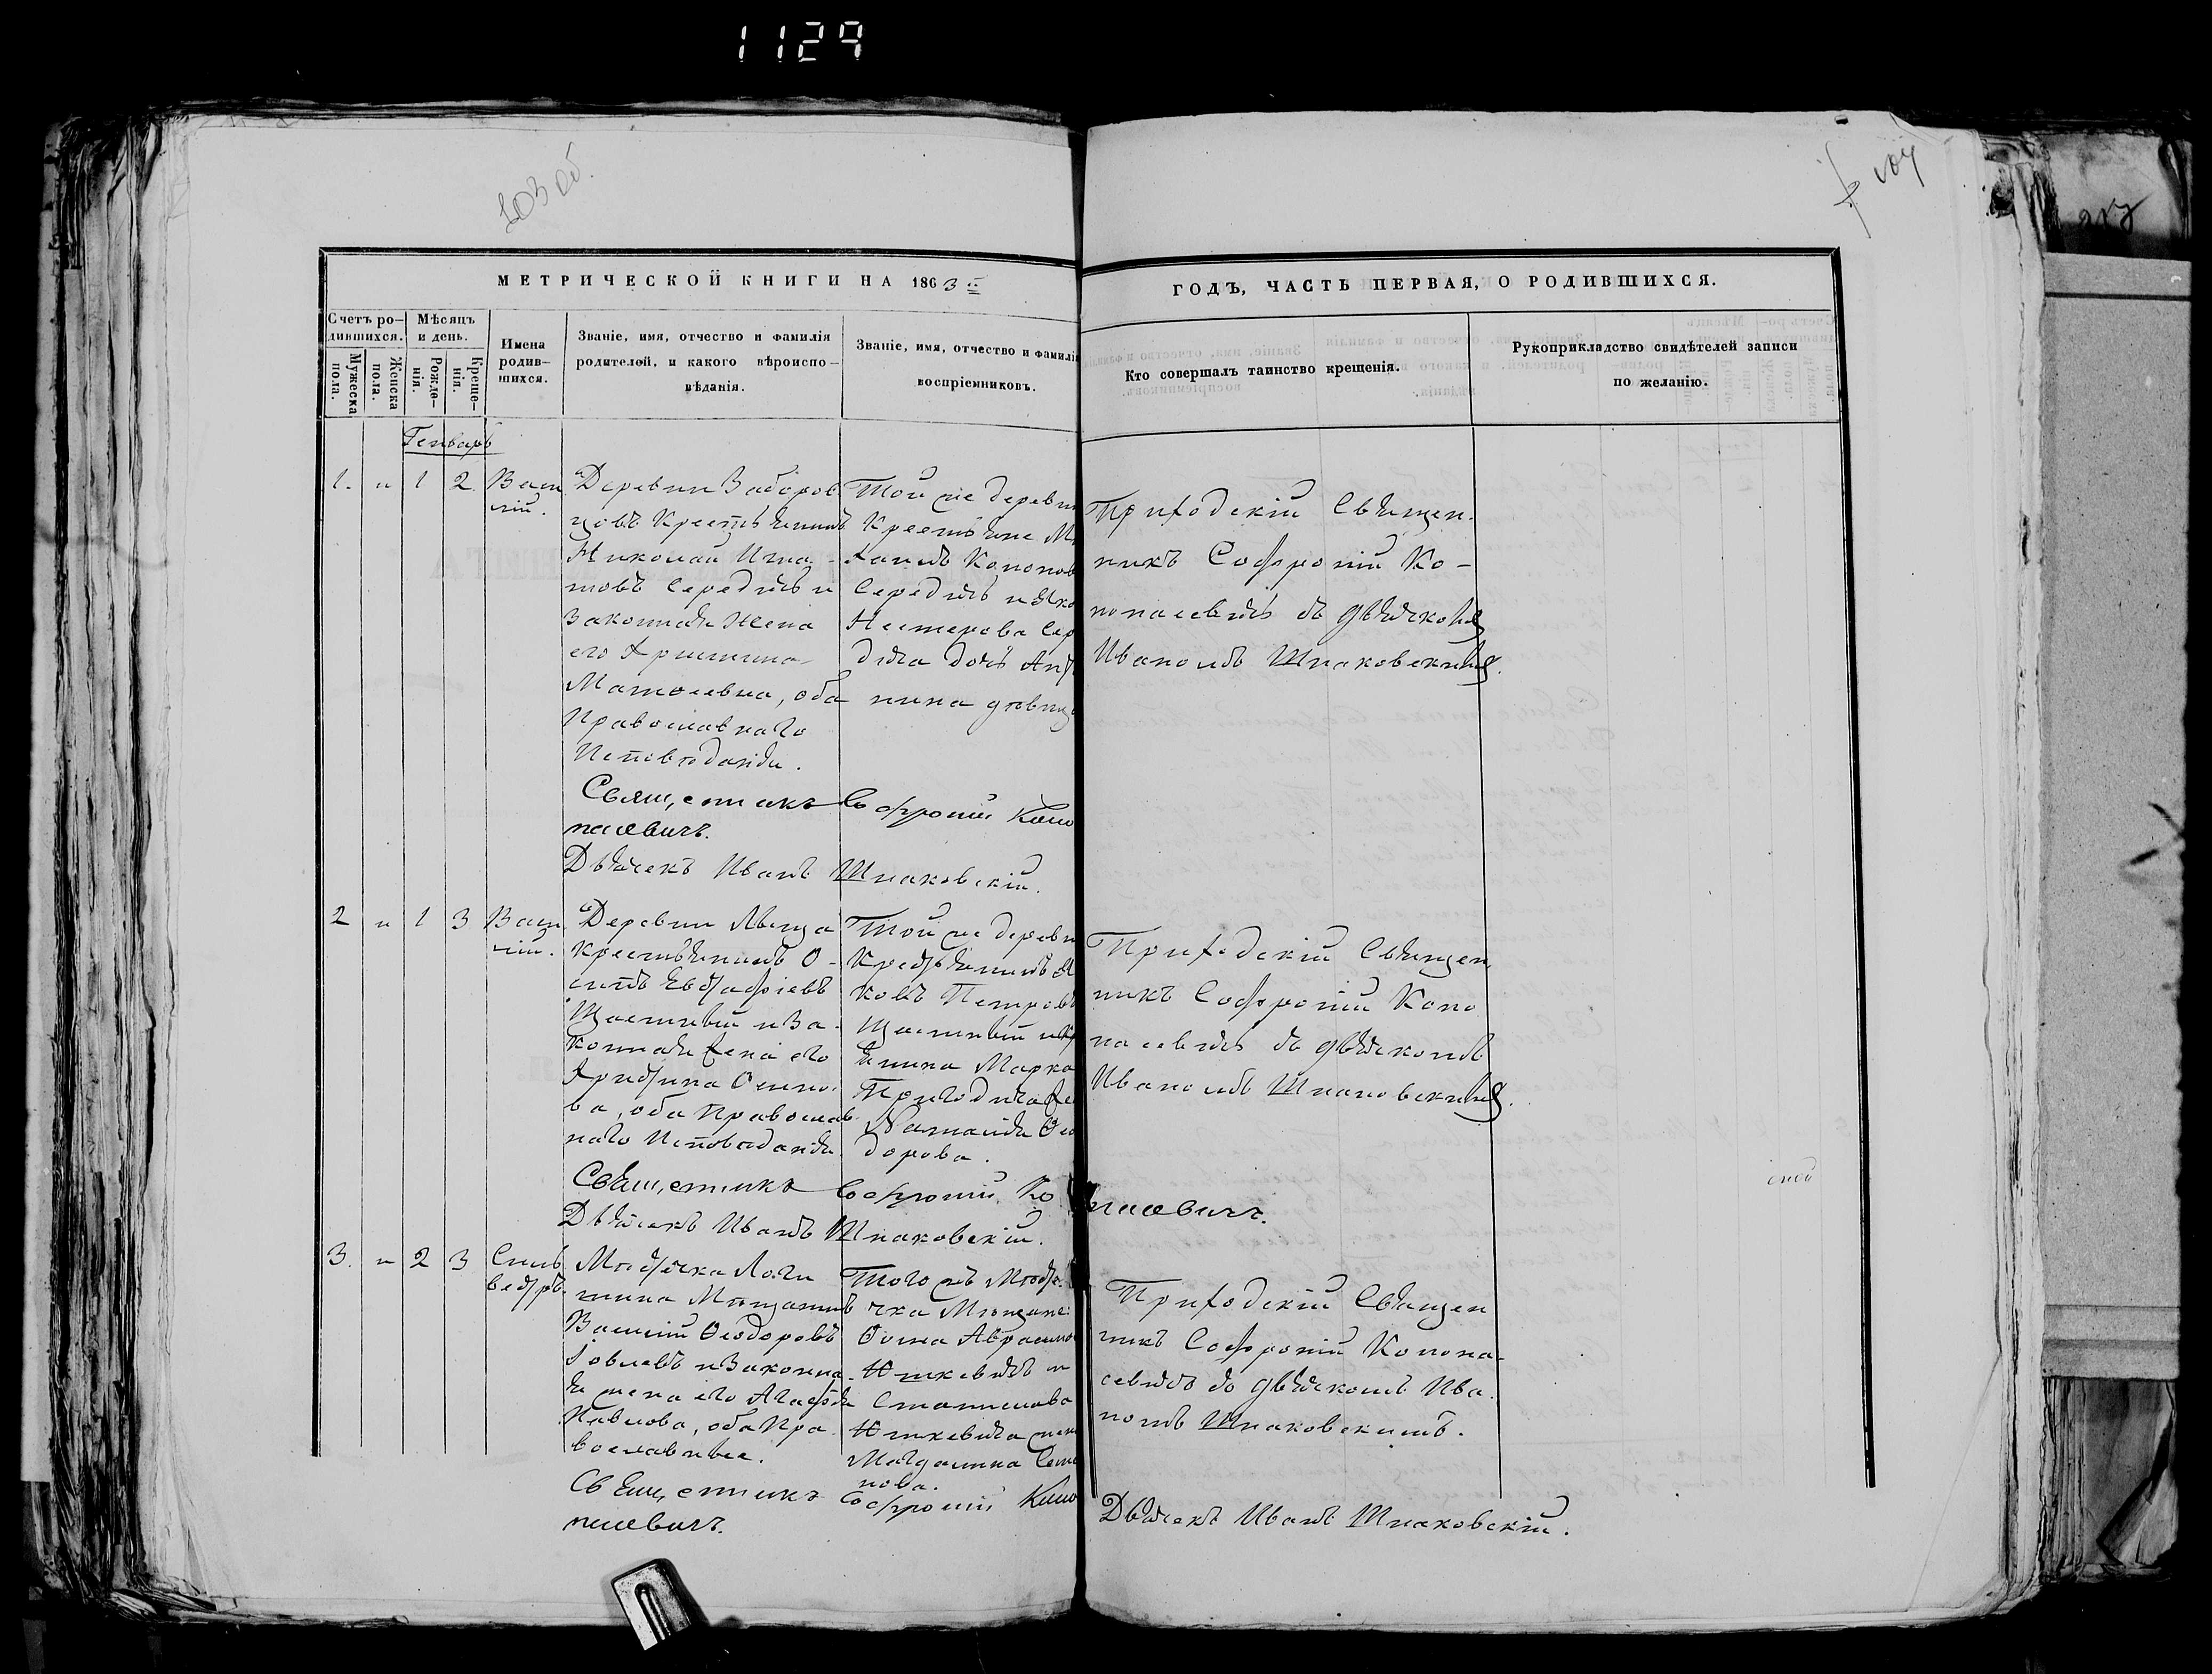 1129
103 об.
МЕТРИЧЕСКОЙ КНИГИ НА 1863
ГОДЪ, ЧАСТЬ ПЕРВАЯ, О РОДИВШИХСЯ.
Счетъ ро-
дившихся.
Мужеска
пола.
Женска
пола.
Мѣсяцъ
и день.
Рожде-
нія.
Креще-
нія.
Имена
родив-
шихся.
Званіе, имя, отчество и фамилія
родителей, и какого вѣроиспо-
вѣданія.
Званіе, имя, отчество и фамилія
воспріемниковъ.
Кто совершалъ таинство крещенія.
Рукоприкладство свидѣтелей записи
по желанію.
Генварь
1. " 1 2. Васи
лій.
Деревни Заборов
цовъ Крестьянинъ
Николай Игна-
товъ Середичъ и
Законная Жена
его Христина
Матѳеевна, оба
Православнаго
Исповѣданія.
Той же деревн
Крестьяне М
хаилъ Кононов
Середичъ и Яко
Нестерова Сер
дича дочь Ант
нина дѣвица
Приходскій Священ
никъ Софроній Ко-
нопасевичъ съ дьячкомъ
Иваномъ Шпаковскимъ.
Священникъ Софроній Коно
пасевичъ.
Дьячекъ Иванъ Шпаковскій.
2 " 1 3 Васи
лій.
Деревни
Крестьянинъ О-
сипъ Евстафіевъ
Щастный и За-
конная жена его
Христина Осипо
ва, оба Православ
наго Исповѣданія
Той же деревн
Крестьянинъ Я
ковъ Петровъ
Щастный и кр
янина Марка
Пригодича же
Наталія Ѳео
дорова.
Приходскій Священ
никъ Софроній Коно
пасевичъ съ дьячкомъ
Иваномъ Шпаковскимъ.
Священникъ Софроній Ко
нопасевичъ.
Дьячекъ Иванъ Шпаковскій.
3. " 2 3 Силь
вестръ.
Мѣстечка Логи
шина Мѣщанинъ
Василій Ѳеодоровъ
и Законна
я жена его Агафія
Павлова, оба Пра
вославные.
Того жъ Мѣсте
чка Мѣщане
Ѳома Аврамов
Юшкевичъ и
Станислава
Юшкевича жен
Магдалина Семе
нова.
Приходскій Священ
никъ Софроній Конопа-
севичъ съ дьячкомъ Ива
номъ Шпаковскимъ.
Священникъ Софроній Коно
пасевичъ.
Дьячекъ Иванъ Шпаковскій.